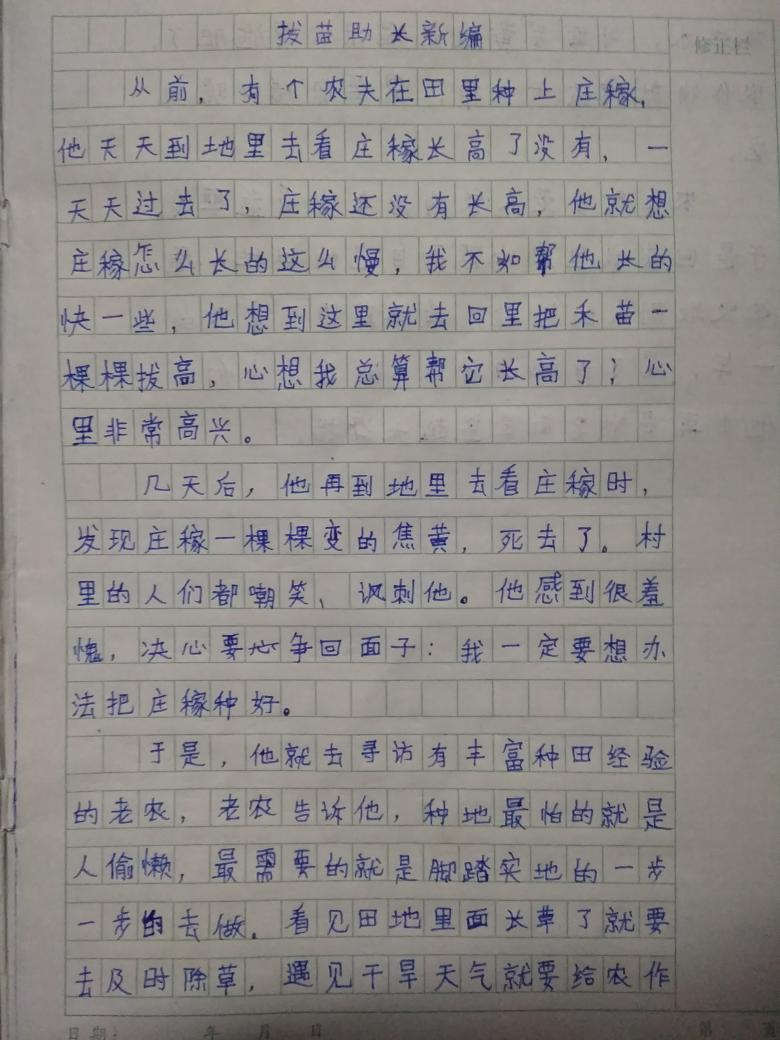 拔苗助长新编
修正栏
从前，有个农夫在田里种上庄稼，
他天天到地里去看庄稼长高了没有，一
天天过去了，庄稼还没有长高，他就想
庄稼怎么长的这么慢，我不如帮他长的
快一些，他想到这里就去回里把禾苗一
棵棵拔高，心想我总算帮它长高了？心
里非常高兴。
几天后，他再到地里去看庄稼时，
发现庄稼一棵棵变的焦黄，死去了。村
里的人们都嘲笑、讽刺他。他感到很羞
愧，决心要心争回面子：我一定要想办
法把庄稼种好。
于是，他就去寻访有丰富种田经验
的老农，老农告诉他，种地最怕的就是
人偷懒，最需要的就是脚踏实地的一步
一步的去做。看见田地里面长草了就要
去及时除草，遇见干旱天气就要给农作
日期： 年 月 日 第 页